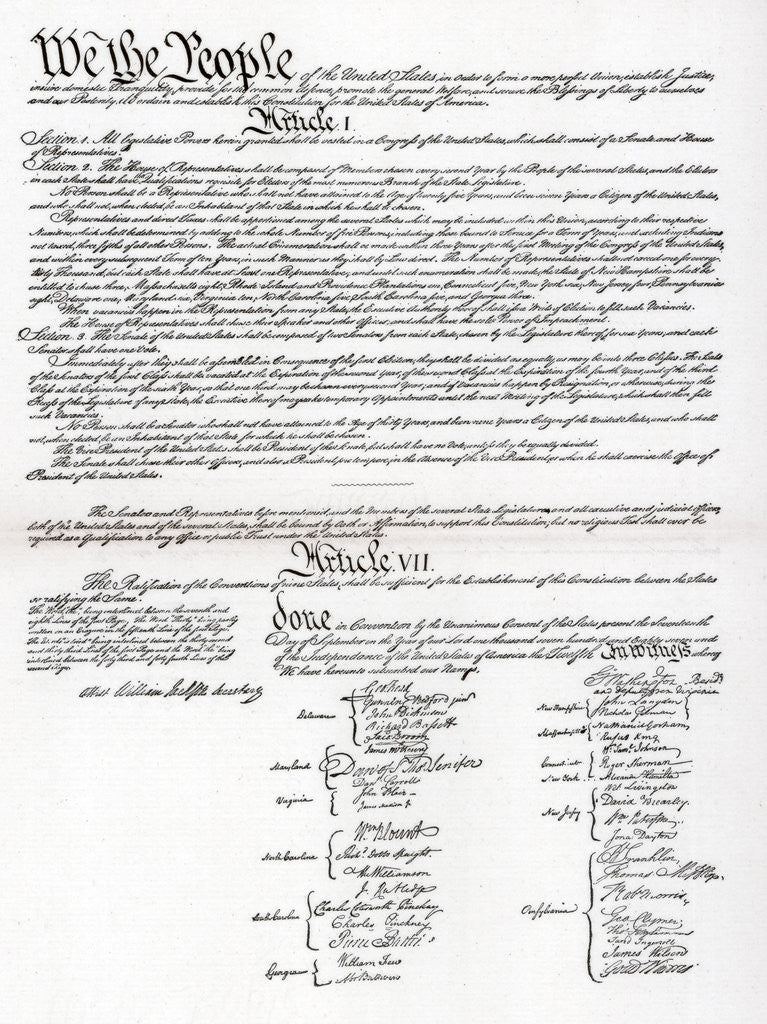 We the People of the United States, in order to form a more perfect Union, establish Justice,
insure domestic Tranquility, provide for the common defence, promote the general Welfare, and secure the Blessings of Liberty to ourselves
and our Posterity, do ordain and establish this Constitution for the United States of America.
Article I.
Section 1. All legislative Powers herein granted shall be vested in a Congress of the United States, which shall consist of a Senate and House
of Representatives.
Section 2. The House of Representatives shall be composed of Members chosen every second Year by the People of the several States, and the Electors
in each State shall have Qualifications requisite for Electors of the most numerous Branch of the State Legislature.
No Person shall be a Representative who shall not have attained to the Age of twenty five Years, and been seven Years a Citizen of the United States,
and who shall not, when elected, be an Inhabitant of that State in which he shall be chosen.
Representatives and direct Taxes shall be apportioned among the several States which may be included within this Union, according to their respective
Numbers, which shall be determined by adding to the whole Number of free Persons, including those bound to Service for a Term of Years, and excluding Indians
not taxed, three fifths of all other Persons. The actual Enumeration shall be made within three Years after the first Meeting of the Congress of the United States,
and within every subsequent Term of ten Years, in such Manner as they shall by Law direct. The Number of Representatives shall not exceed one for every
thirty Thousand, but each State shall have at Least one Representative; and until such enumeration shall be made, the State of New Hampshire shall be
entitled to chuse three, Massachusetts eight, Rhode Island and Providence Plantations one, Connecticut five, New York six, New Jersey four, Pennsylvania
eight, Delaware one, Maryland six, Virginia ten, North Carolina five, South Carolina five, and Georgia three.
When vacancies happen in the Representation from any State, the Executive Authority thereof shall issue Writs of Election to fill such Vacancies.
The House of Representatives shall chuse their Speaker and other Officers; and shall have the sole Power of Impeachment.
Section 3. The Senate of the United States shall be composed of two Senators from each State, chosen by the Legislature thereof, for six Years; and each
Senator shall have one Vote.
Immediately after they shall be assembled in Consequence of the first Election, they shall be divided as equally as may be into three Classes. The Seats
of the Senators of the first Class shall be vacated at the Expiration of the second Year, of the second Class at the Expiration of the fourth Year, and of the third
Class at the Expiration of the sixth Year, so that one third may be chosen every second Year; and if Vacancies happen by Resignation, or otherwise, during the
Recess of the Legislature of any State, the Executive thereof may make temporary Appointments until the next Meeting of the Legislature, which shall then fill
such Vacancies.
No Person shall be a Senator who shall not have attained to the Age of thirty Years, and been nine Years a Citizen of the United States, and who shall
not, when elected, be an Inhabitant of that State for which he shall be chosen.
The Vice President of the United States shall be President of the Senate, but shall have no Vote, unless they be equally divided.
The Senate shall chuse their other Officers, and also a President pro tempore, in the Absence of the Vice President, or when he shall exercise the Office of
President of the United States.
The Senators and Representatives before mentioned, and the Members of the several State Legislatures, and all executive and judicial Officers,
both of the United States and of the several States, shall be bound by Oath or Affirmation, to support this Constitution; but no religious Test shall ever be
required as a Qualification to any Office or public Trust under the United States.
Article. VII.
The Ratification of the Conventions of nine States, shall be sufficient for the Establishment of this Constitution between the States
so ratifying the Same.
The Word, "the", being interlined between the seventh and
eighth Lines of the first Page, The Word "Thirty" being partly
written on an Erazure in the fifteenth Line of the first Page,
The Words "is tried" being interlined between the thirty second
and thirty third Lines of the first Page and the Word "the" being
interlined between the forty third and forty fourth Lines of the
second Page.
Attest William Jackson Secretary
done in Convention by the Unanimous Consent of the States present the Seventeenth
Day of September in the Year of our Lord one thousand seven hundred and Eighty seven and
of the Independance of the United States of America the Twelfth In Witness whereof
We have hereunto subscribed our Names,
Delaware
Geo: Read
Gunning Bedford jun
John Dickinson
Richard Bassett
Jaco: Broom
Maryland
James McHenry
Dan of St Thos Jenifer
Danl Carroll
Virginia
John Blair
James Madison Jr
North Carolina
Wm Blount
Richd Dobbs Spaight.
Hu Williamson
South Carolina
J. Rutledge
Charles Cotesworth Pinckney
Charles Pinckney
Pierce Butler
Georgia
William Few
Abr Baldwin
Go Washington Presidt
and deputy from Virginia
New Hampshire
John Langdon
Nicholas Gilman
Massachusetts
Nathaniel Gorham
Rufus King
Connecticut
Wm Saml Johnson
Roger Sherman
New York
Alexander Hamilton
New Jersey
Wil: Livingston
David Brearley.
Wm Paterson.
Jona: Dayton
Pensylvania
B Franklin
Thomas Mifflin
Robt Morris
Geo. Clymer
Thos FitzSimons
Jared Ingersoll
James Wilson
Gouv Morris